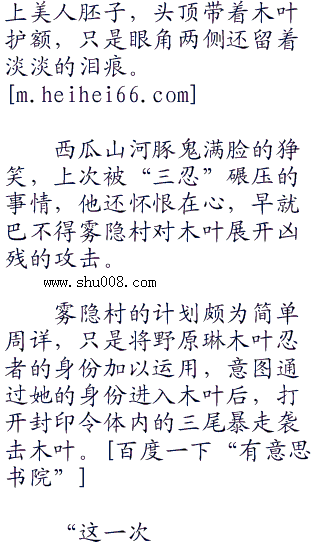 上美人胚子，头顶带着木叶
护额，只是眼角两侧还留着
淡淡的泪痕。
[m.heihei66.com]
西瓜山河豚鬼满脸的狰
笑，上次被“三忍”碾压的
事情，他还怀恨在心，早就
巴不得雾隐村对木叶展开凶
残的攻击。
www.shu008.com
雾隐村的计划颇为简单
周详，只是将野原琳木叶忍
者的身份加以运用，意图通
过她的身份进入木叶后，打
开封印令体内的三尾暴走袭
击木叶。[百度一下“有意思
书院”]
“这一次